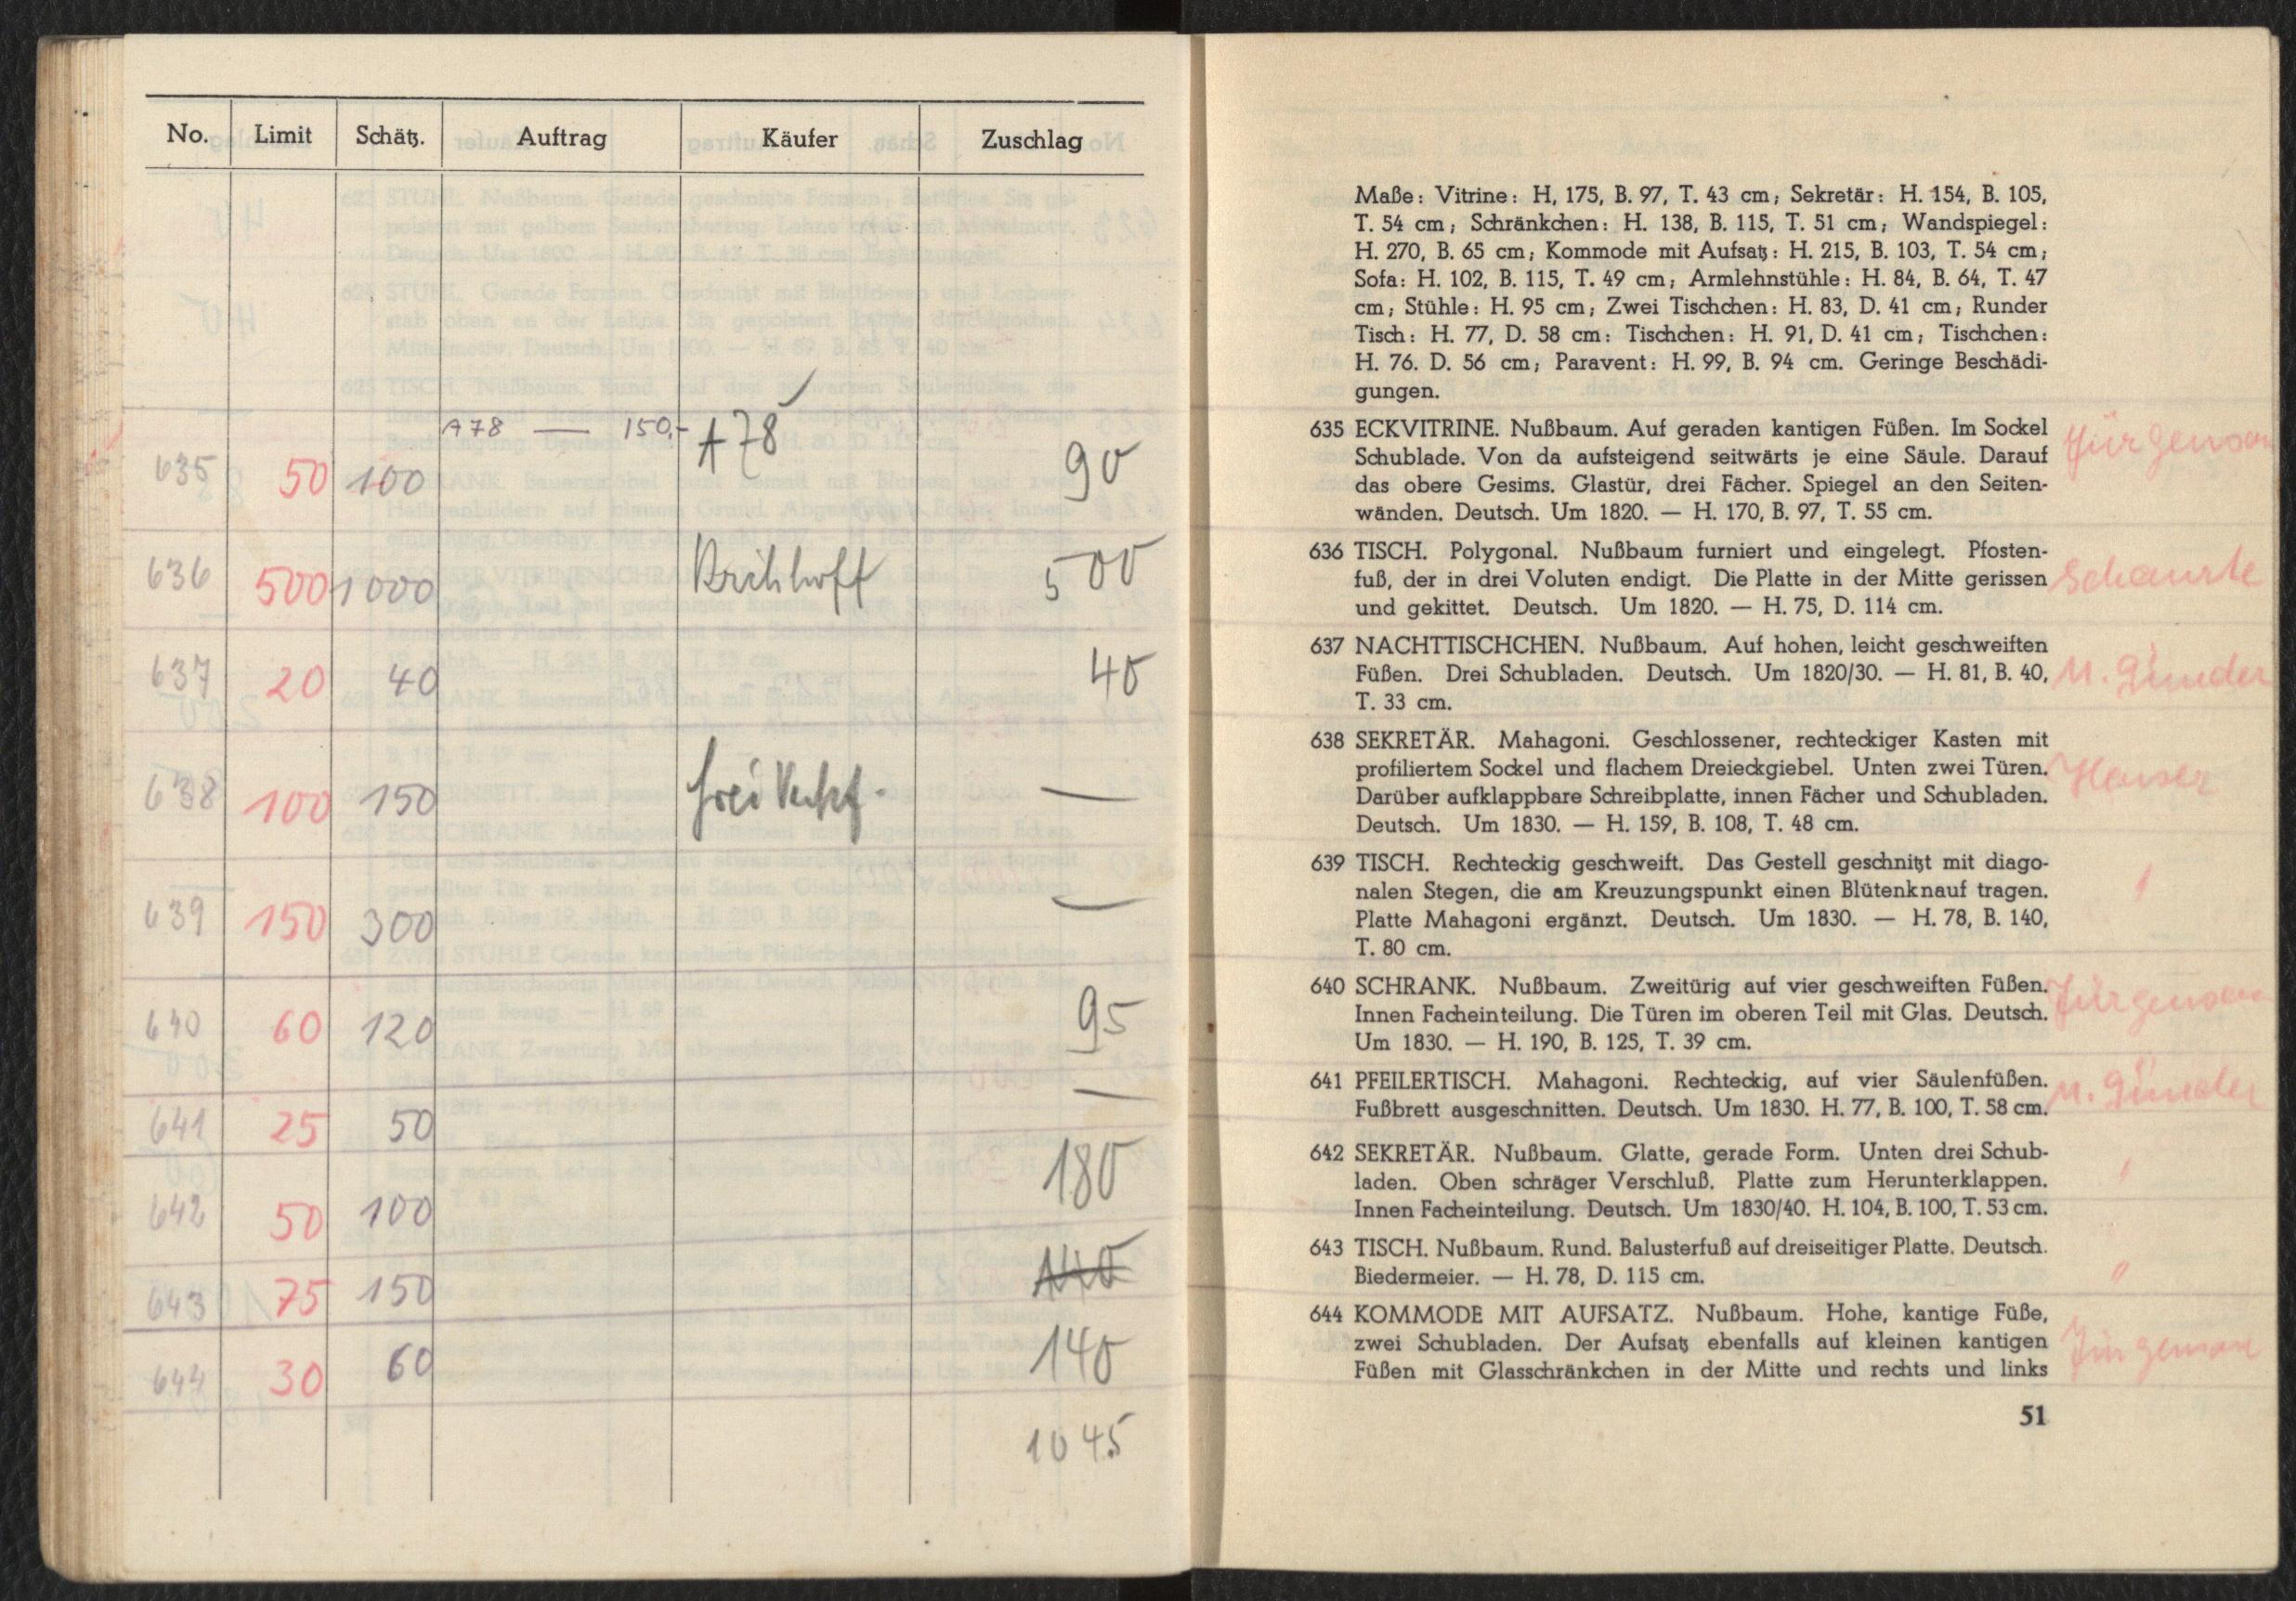 No. Limit Schätz. Auftrag Käufer Zuschlag
A78 — 150,- A78
635 50 100 90
636 500 1000 500
637 20 40 40
638 100 150 —
639 150 300 —
640 60 120 95
641 25 50 —
642 50 100 180
643 75 150 140
644 30 60 140
1045
Maße: Vitrine: H, 175, B. 97, T. 43 cm; Sekretär: H. 154, B. 105,
T. 54 cm; Schränkchen: H. 138, B. 115, T. 51 cm; Wandspiegel:
H. 270, B. 65 cm; Kommode mit Aufsatz: H. 215, B. 103, T. 54 cm;
Sofa: H. 102, B. 115, T. 49 cm; Armlehnstühle: H. 84, B. 64, T. 47
cm; Stühle: H. 95 cm; Zwei Tischchen: H. 83, D. 41 cm; Runder
Tisch: H. 77, D. 58 cm: Tischchen: H. 91, D. 41 cm; Tischchen:
H. 76. D. 56 cm; Paravent: H. 99, B. 94 cm. Geringe Beschädi-
gungen.
635 ECKVITRINE. Nußbaum. Auf geraden kantigen Füßen. Im Sockel Jürgensen
Schublade. Von da aufsteigend seitwärts je eine Säule. Darauf
das obere Gesims. Glastür, drei Fächer. Spiegel an den Seiten-
wänden. Deutsch. Um 1820. — H. 170, B. 97, T. 55 cm.
636 TISCH. Polygonal. Nußbaum furniert und eingelegt. Pfosten-
fuß, der in drei Voluten endigt. Die Platte in der Mitte gerissen
und gekittet. Deutsch. Um 1820. — H. 75, D. 114 cm.
637 NACHTTISCHCHEN. Nußbaum. Auf hohen, leicht geschweiften
Füßen. Drei Schubladen. Deutsch. Um 1820/30. — H. 81, B. 40, M. Günder
T. 33 cm.
638 SEKRETÄR. Mahagoni. Geschlossener, rechteckiger Kasten mit
profiliertem Sockel und flachem Dreieckgiebel. Unten zwei Türen. Hauser
Darüber aufklappbare Schreibplatte, innen Fächer und Schubladen.
Deutsch. Um 1830. — H. 159, B. 108, T. 48 cm.
639 TISCH. Rechteckig geschweift. Das Gestell geschnitzt mit diago-
nalen Stegen, die am Kreuzungspunkt einen Blütenknauf tragen.
Platte Mahagoni ergänzt. Deutsch. Um 1830. — H. 78, B. 140,
T. 80 cm.
640 SCHRANK. Nußbaum. Zweitürig auf vier geschweiften Füßen. Jürgensen
Innen Facheinteilung. Die Türen im oberen Teil mit Glas. Deutsch.
Um 1830. — H. 190, B. 125, T. 39 cm.
641 PFEILERTISCH. Mahagoni. Rechteckig, auf vier Säulenfüßen. M. Günder
Fußbrett ausgeschnitten. Deutsch. Um 1830. H. 77, B. 100, T. 58 cm.
642 SEKRETÄR. Nußbaum. Glatte, gerade Form. Unten drei Schub-
laden. Oben schräger Verschluß. Platte zum Herunterklappen.
Innen Facheinteilung. Deutsch. Um 1830/40. H. 104, B. 100, T. 53 cm.
643 TISCH. Nußbaum. Rund. Balusterfuß auf dreiseitiger Platte. Deutsch.
Biedermeier. — H. 78, D. 115 cm. "
644 KOMMODE MIT AUFSATZ. Nußbaum. Hohe, kantige Füße,
zwei Schubladen. Der Aufsatz ebenfalls auf kleinen kantigen Jürgensen
Füßen mit Glasschränkchen in der Mitte und rechts und links
51